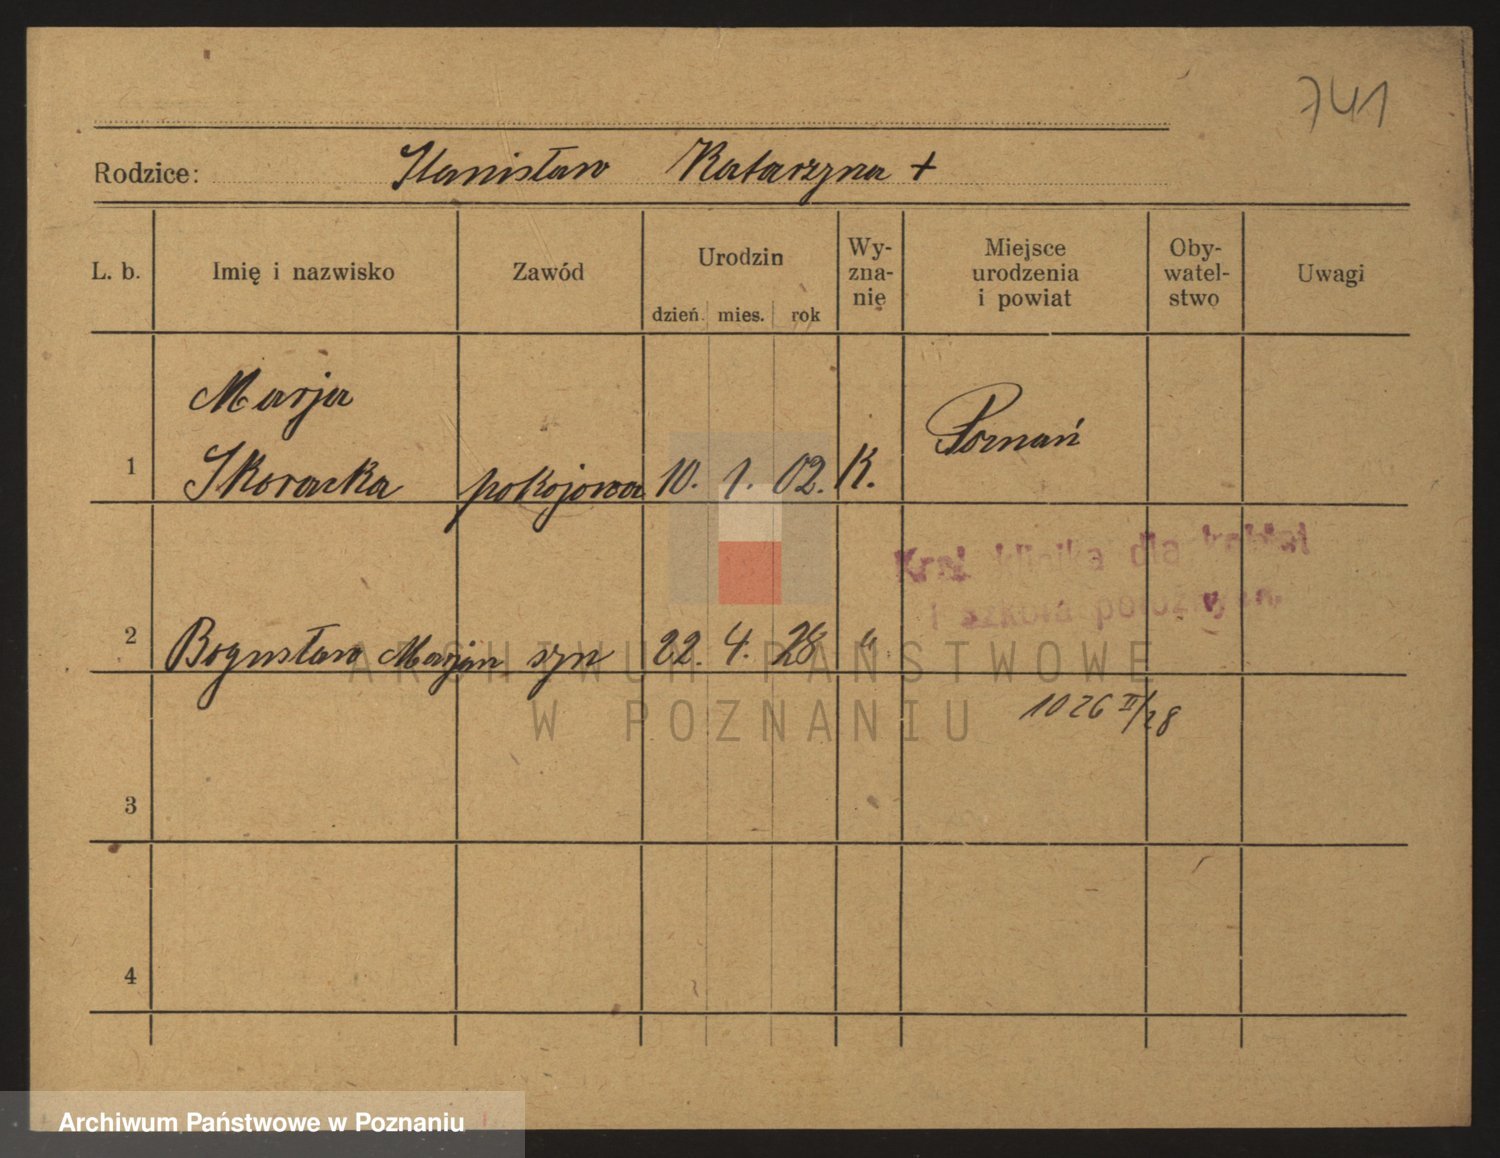 741
Rodzice: Stanisław Katarzyna +
L. b. Imię i nazwisko Zawód Urodzin dzień mies. rok Wy-zna-nie Miejsce urodzenia i powiat Oby-watel-stwo Uwagi
Marja Poznań
1 Skoracka pokojowa 10. 1. 02. K.
Kraj. klinika dla kobiet
i szkoła położnych.
2 Bogusław Marjan syn 22. 4. 28 "
ARCHIWUM PAŃSTWOWE
W POZNANIU
1026 II/28
3
4
Archiwum Państwowe w Poznaniu